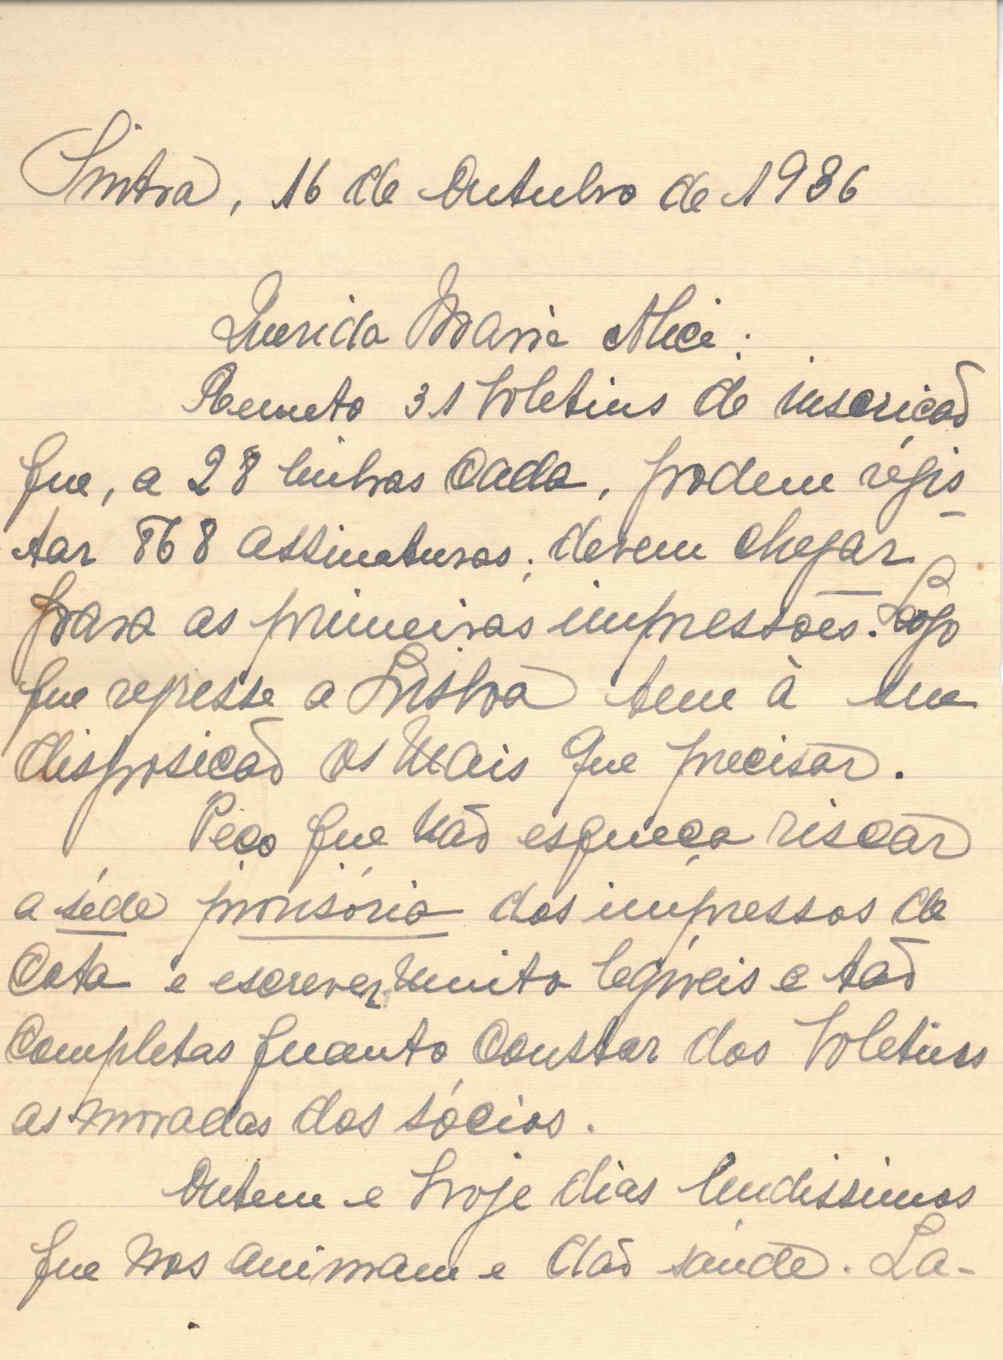 Sintra, 16 de Outubro de 1936
Querida Maria Alice:
Remeto 31 boletins de inscrição
que, a 28 linhas cada, podem régis
tar 868 assinaturas; devem chegar
para as primeiras impressões. Logo
que regresse a Lisboa tem à sua
disposição os mais que precisar.
Peço que não esqueça riscar
a séde provisória dos impressos de
cota e escrever muito legíveis e tão
completas quanto constar dos boletins
as moradas dos sócios.
Ontem e hoje dias lindissimos
que nos animam e dão saúde. La-